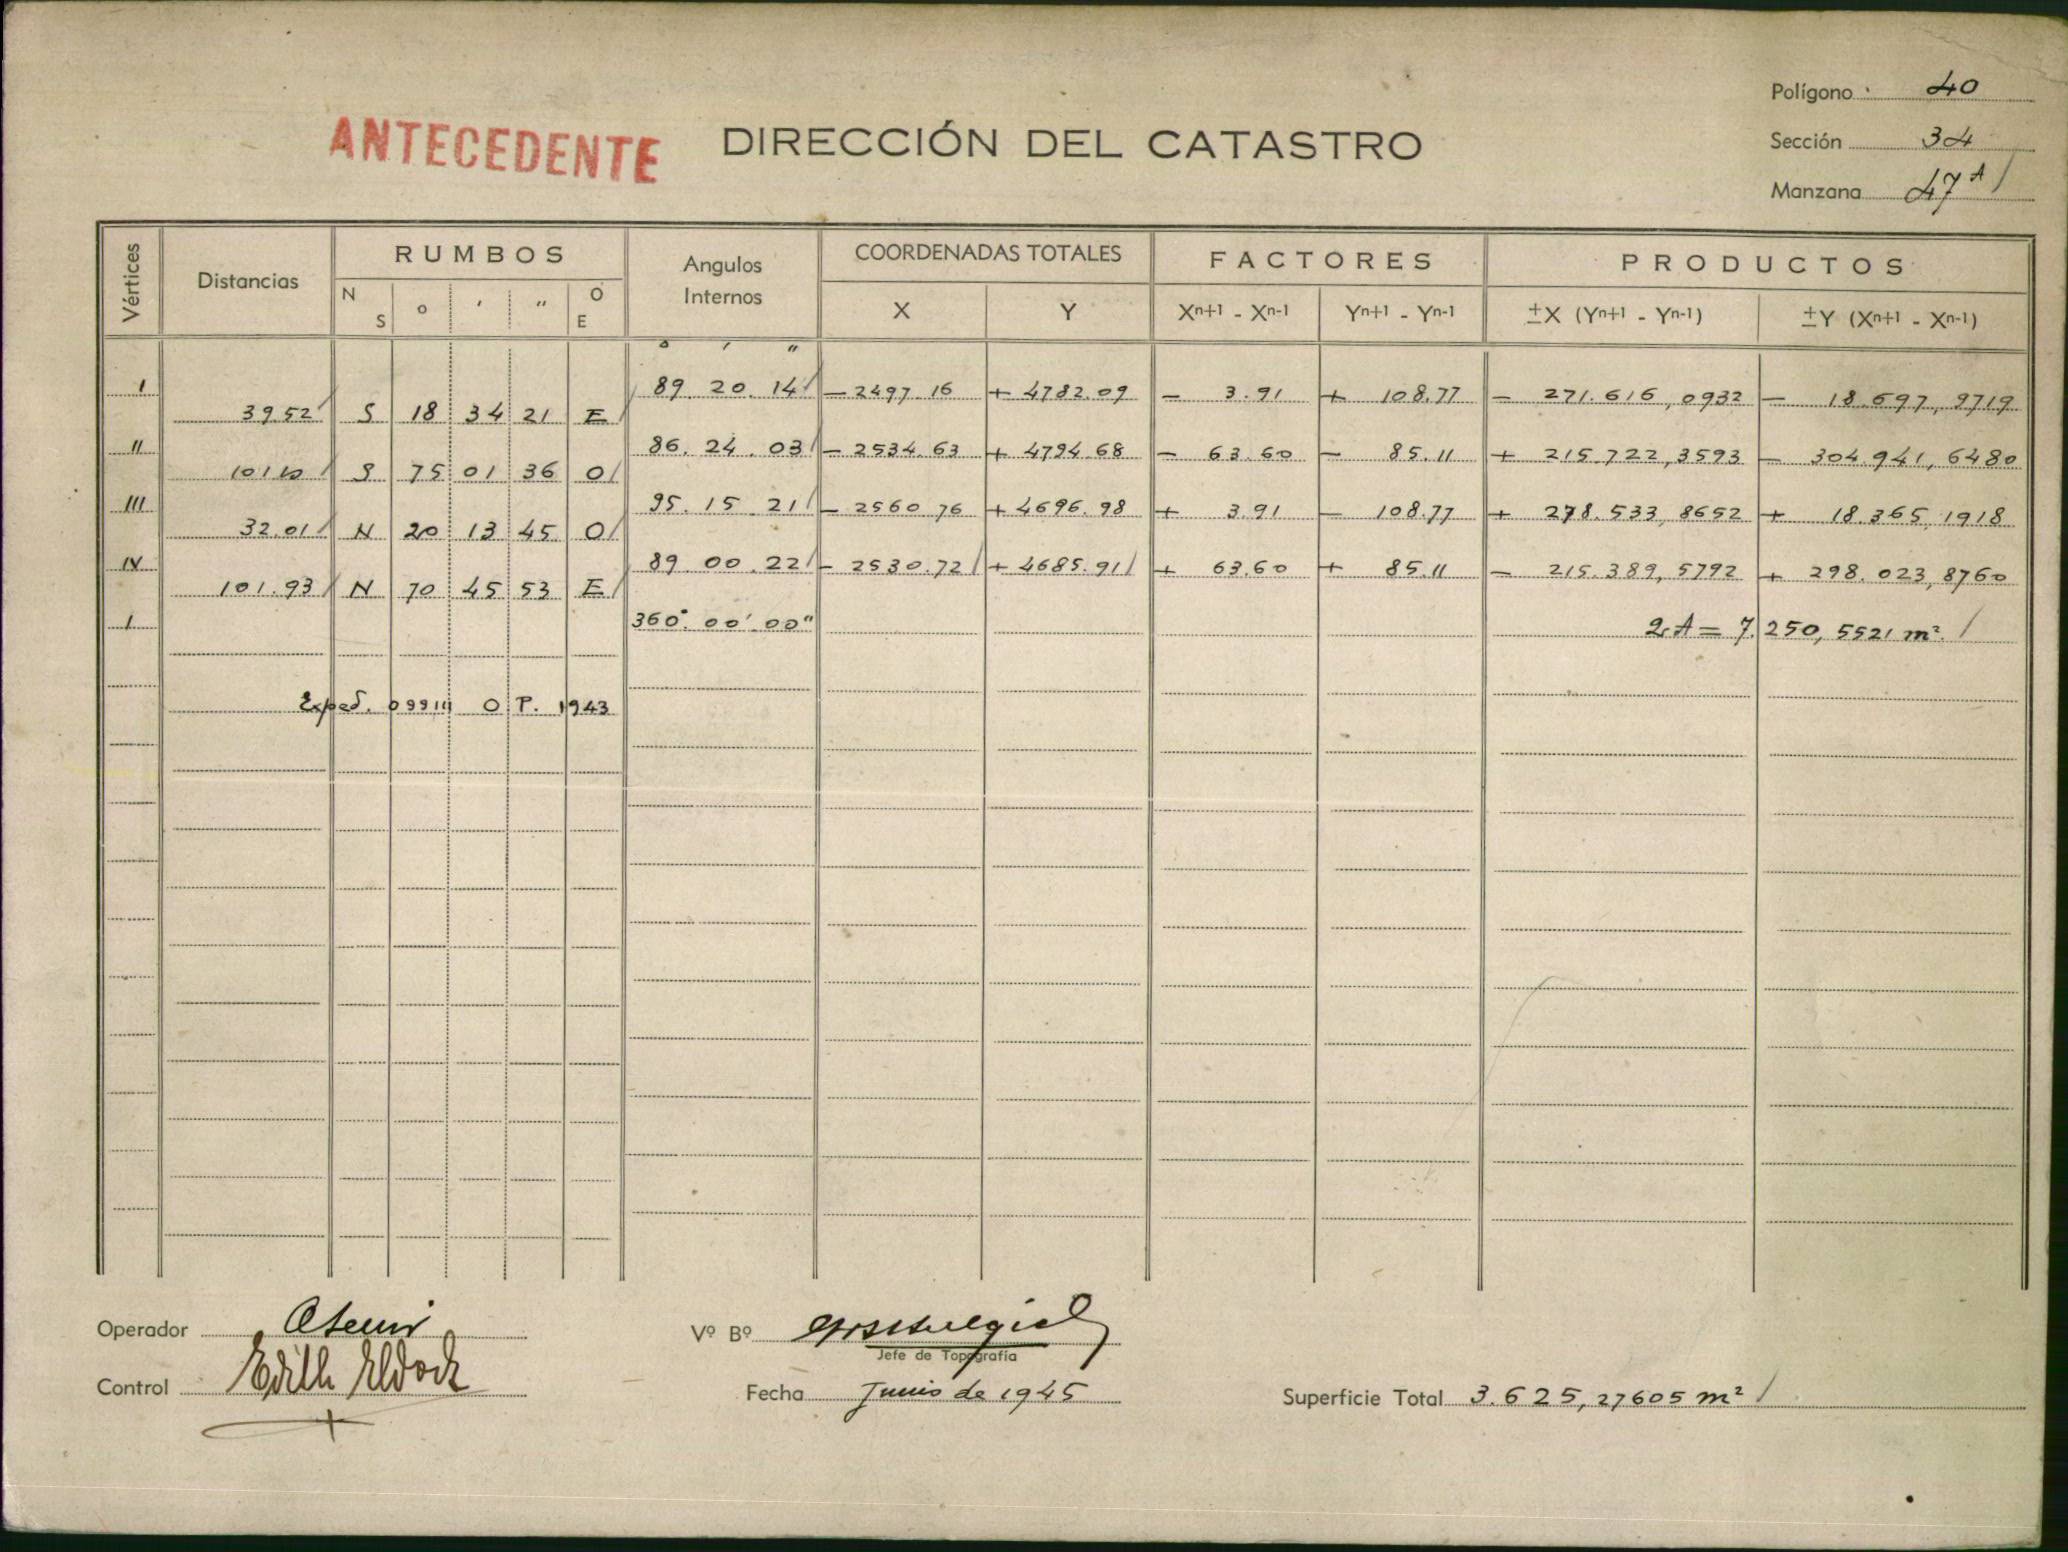 ANTECEDENTE
DIRECCIÓN DEL CATASTRO
Polígono 40
Sección 34
Manzana 47 A
Vértices Distancias RUMBOS Angulos Internos COORDENADAS TOTALES FACTORES PRODUCTOS
N S ° ' " O E X Y Xn+1 - Xn-1 Yn+1 - Yn-1 ±X (Yn+1 - Yn-1) ±Y (Xn+1 - Xn-1)
° ' "
I 89. 20. 14 - 2497.16 + 4782.09 - 3.91 + 108.77 - 271.616,0932 - 18.697,9719
39.52 S 18 34 21 E
II 86. 24. 03 - 2534.63 + 4794.68 - 63.60 - 85.11 + 215.722,3593 - 304.941,6480
101.10 S 75 01 36 O
III 95. 15. 21 - 2560.76 + 4696.98 + 3.91 - 108.77 + 278.533,8652 + 18.365,1918
32.01 N 20 13 45 O
IV 89. 00. 22 - 2530.72 + 4685.91 + 63.60 + 85.11 - 215.389,5792 + 298.023,8760
101.93 N 70 45 53 E
I 360° 00' 00" 2A = 7.250,5521 m²
Exped. 099111 O P. 1943
Operador
Vº Bº
Jefe de Topografía
Control
Fecha Junio de 1945
Superficie Total 3.625,27605 m²